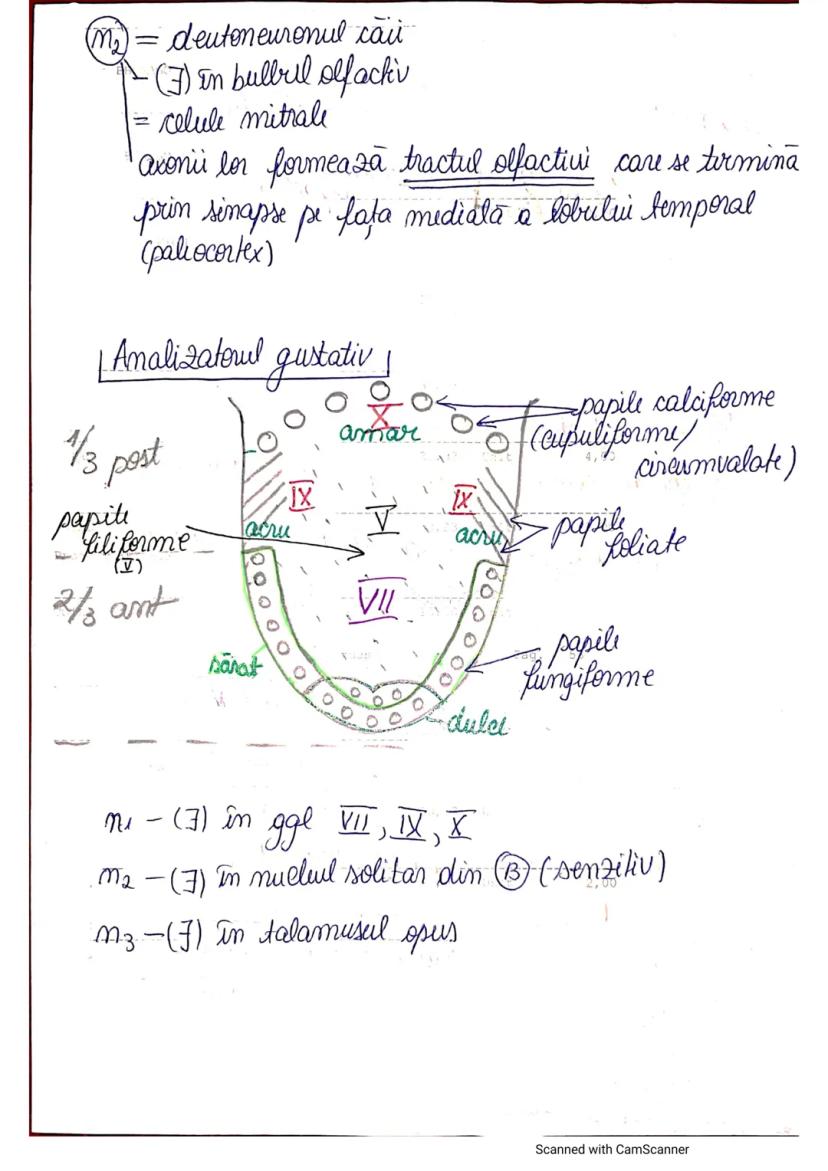 n₂ = deutoneuronul căii
- (∃) în bulbul olfactiv
= celule mitrale
axonii lor formează tractul olfactiv care se termină
prin sinapse pe fața medială a lobului temporal
(paleocortex)
Analizatorul gustativ
1/3 post
X
amar
papile calciforme
(cupuliforme/
circumvalate)
IX
IX
V
papile
filiforme
(V)
acru
acru
papile
foliate
2/3 ant
VII
sărat
papile
fungiforme
dulce
n₁ - (∃) în ggl VII, IX, X
n₂ - (∃) în nucleul solitar din B (senzitiv)
n₃ - (∃) în talamusul opus
Scanned with CamScanner